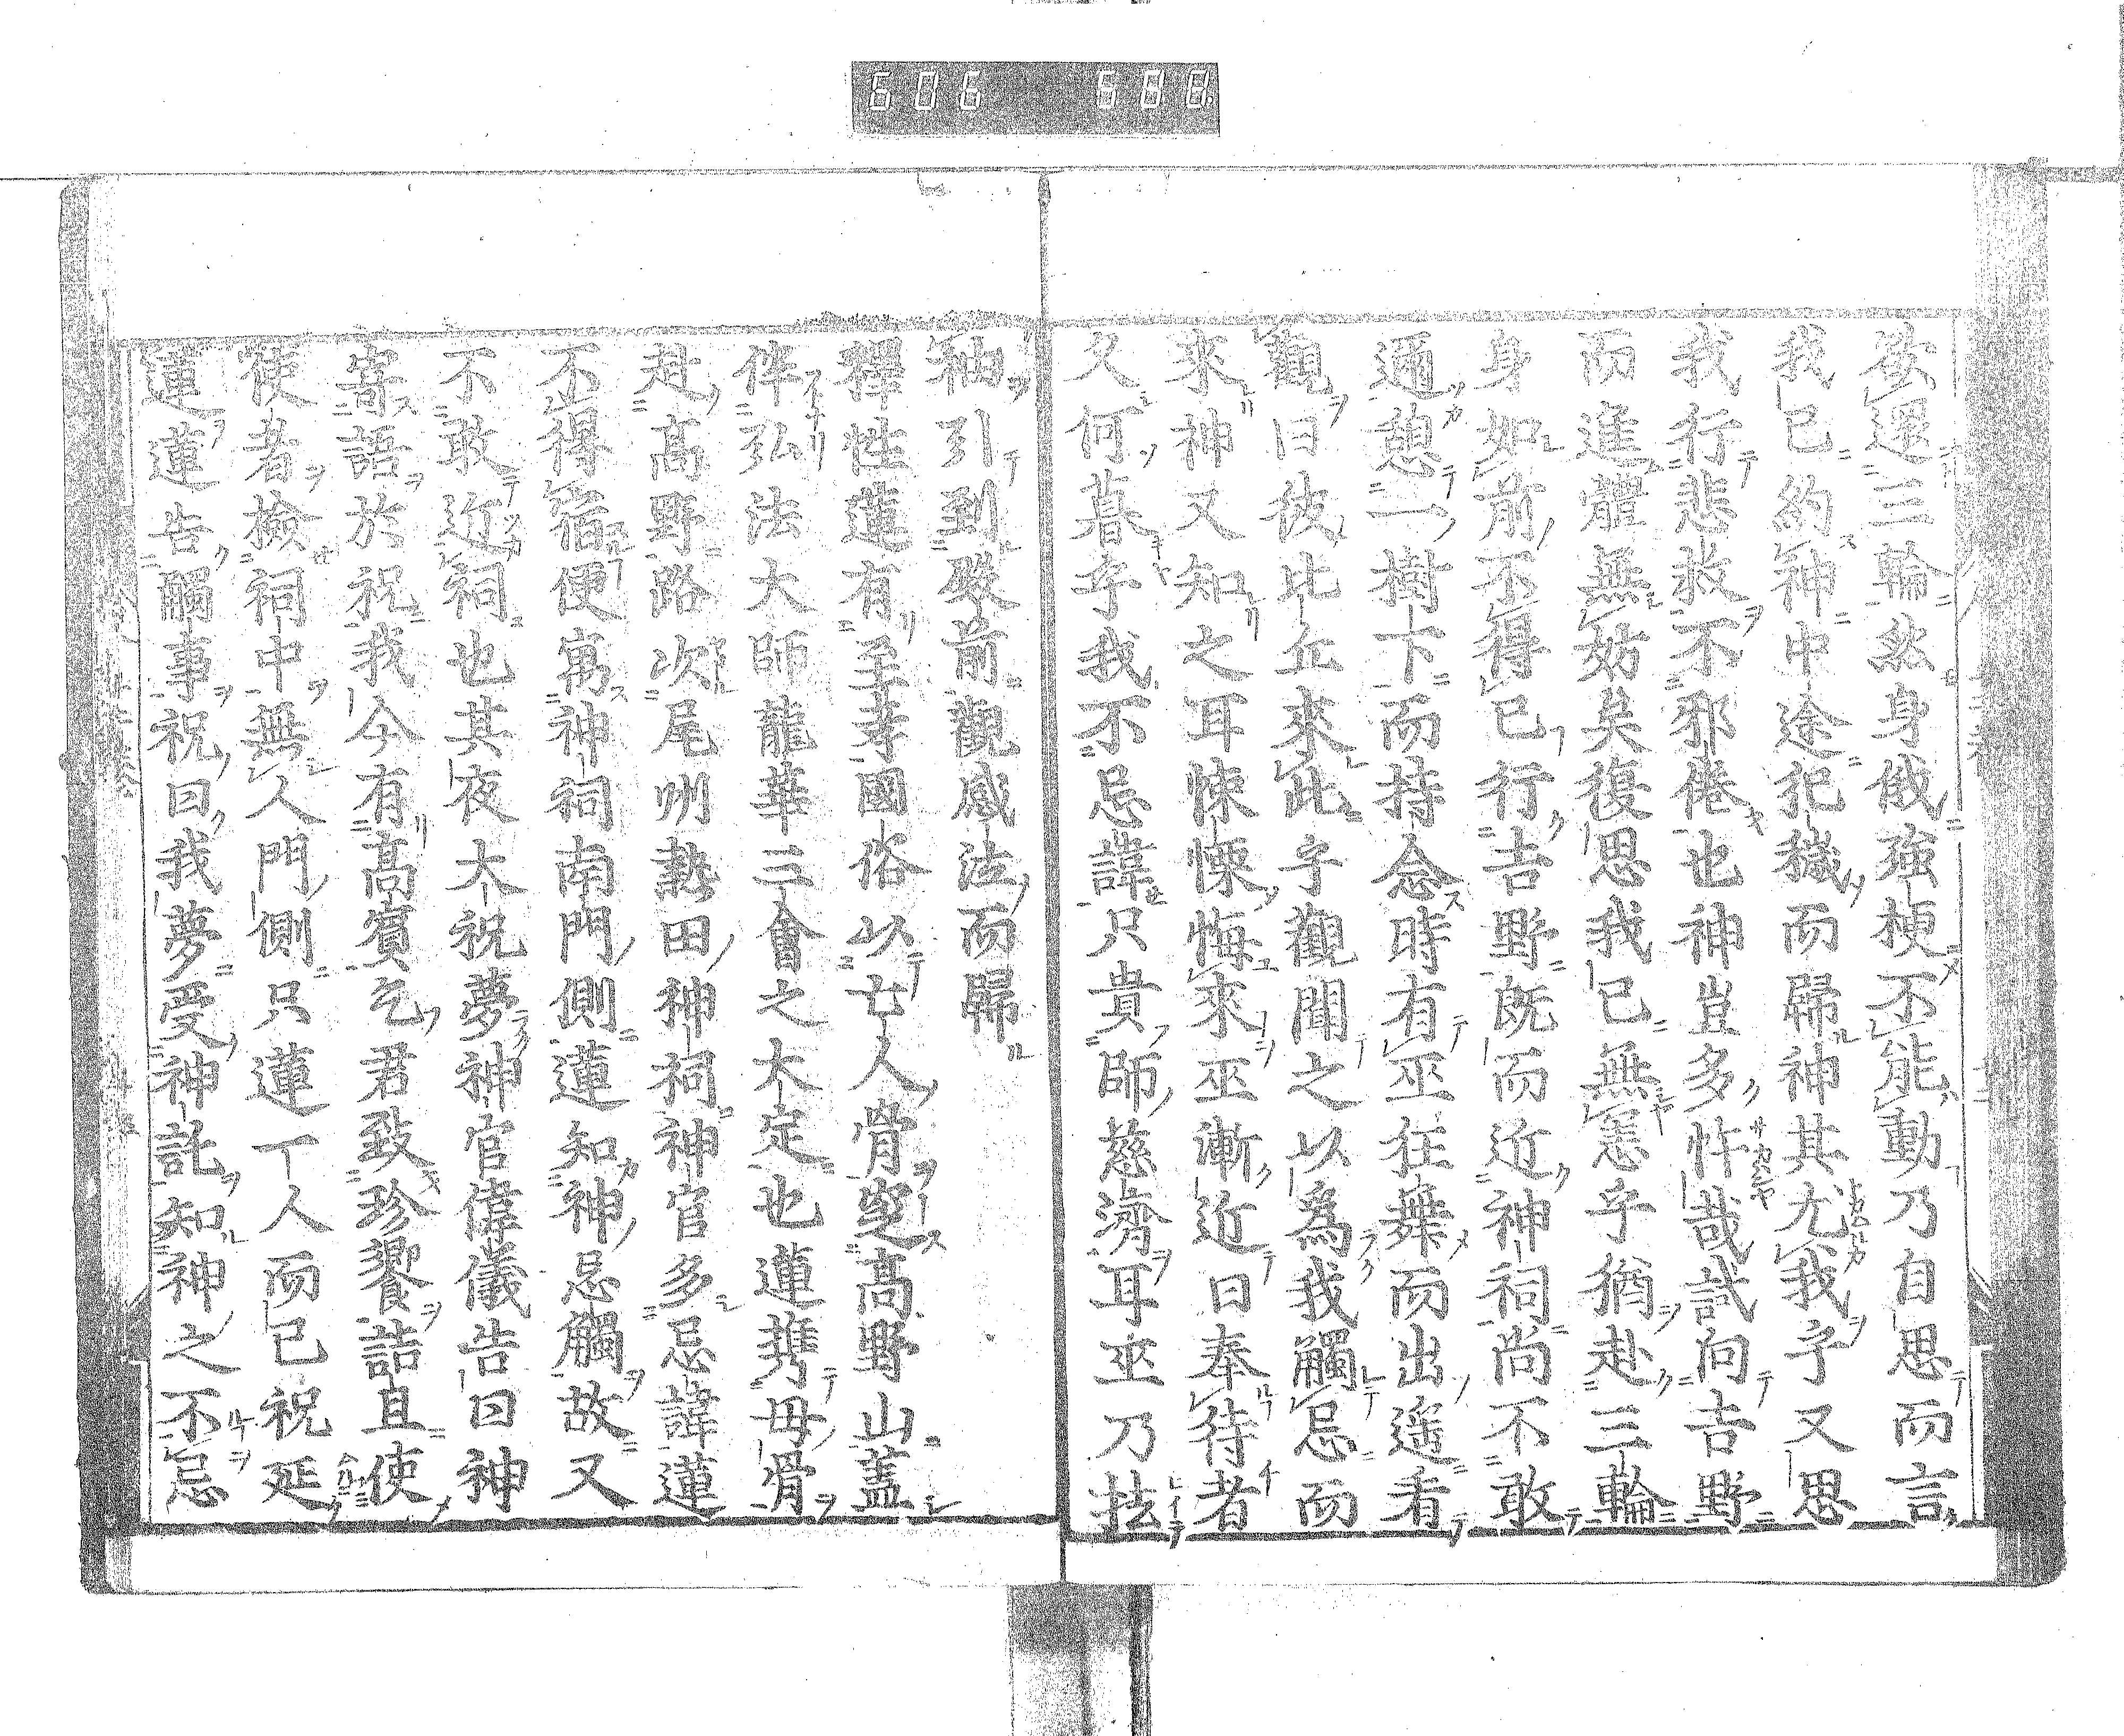 欲還三輪然身俄強梗不能動乃自思而言
我已約神中途犯穢而歸神其尤我乎又思
我行悲救不邪倦也神豈多忤哉試向吉野
而進體無妨矣復思我已無恙乎猶赴三輪
身如前不得已行吉野既而近神祠尚不敢
逼憩一樹下而持念時有巫往舞而出遥看
觀曰彼比丘來此乎觀聞之以爲我觸忌而
來神又知之耳悚慄悔來巫漸近曰奉待者
久何暮乎我不忌諱只貴師慈濟耳巫乃
袖引到殿前觀感法而歸
釋性蓮有至孝國俗以亡人骨窆高野山蓋
伴弘法大師龍華三會之大定也蓮携母骨
赴高野路次尾州熱田神祠神官多忌諱蓮
不得宿便寓神祠南門側蓮知神忌觸故又
不敢近祠也其夜大祝夢神官偉儀告曰神
寄語於祝我今有高賓乞君致珍饗詰旦使
使者撿祠中無人門側只蓮一人而已祝延
蓮蓮告觸事祝曰我夢受神託知神之不忌
606